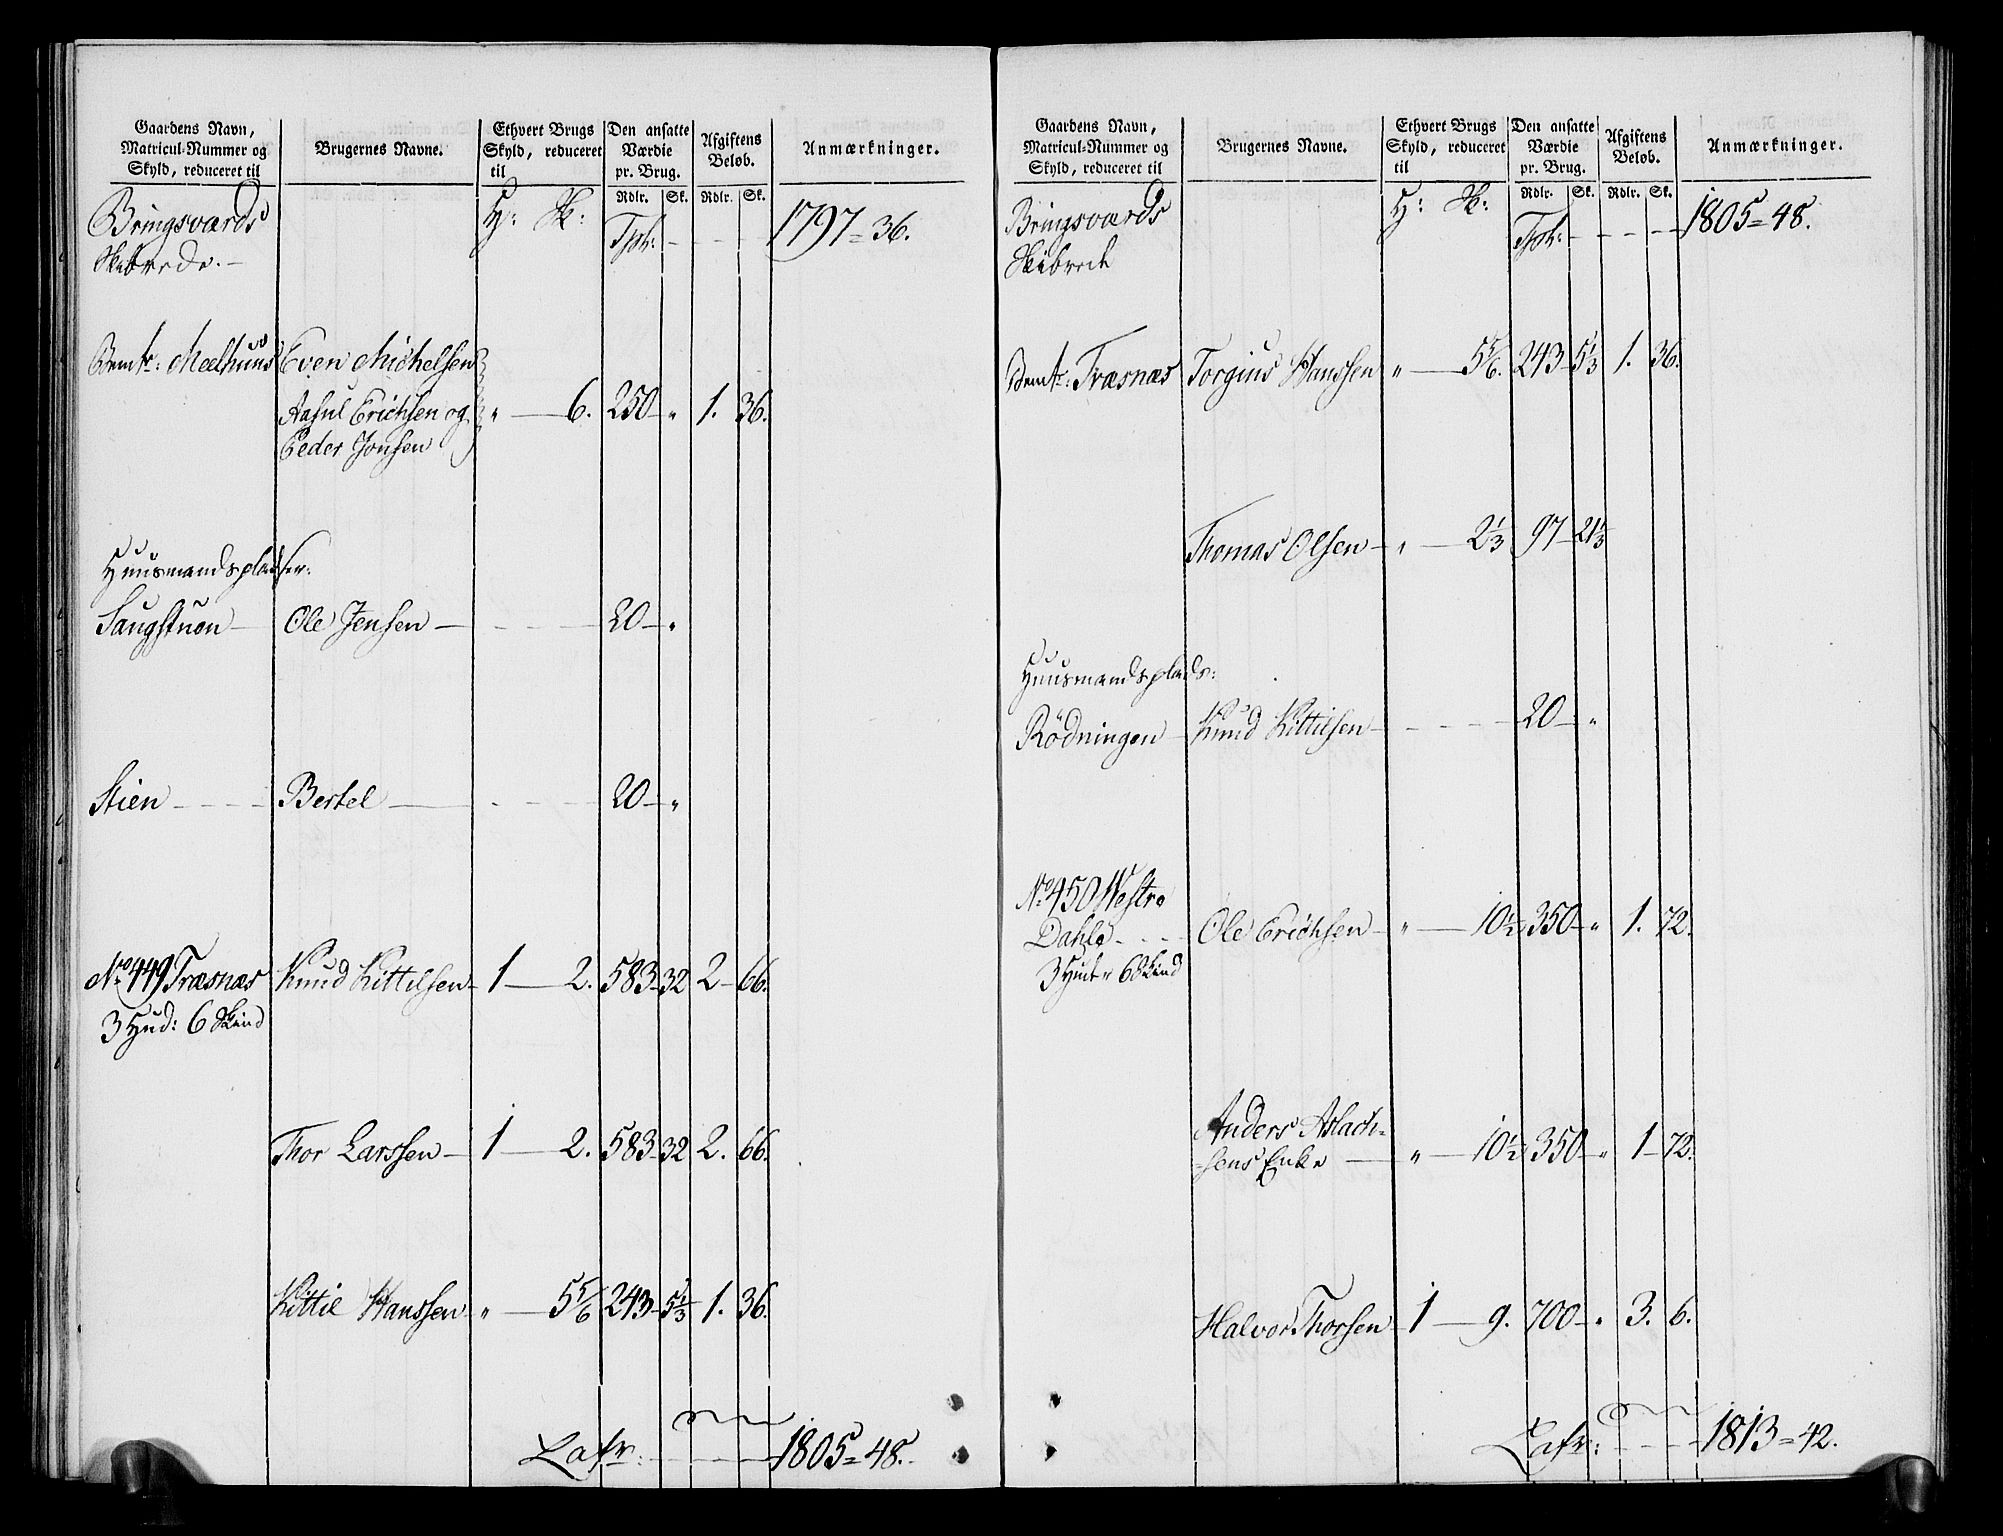 Gaardens Navn, Matricul-Nummer og Skyld, reduceret til | Brugernes Navne. | Ethvert Brugs Skyld, reduceret til | Den ansatte Værdie pr. Brug. | Afgiftens Beløb. | Anmærkninger.
Rdlr. Sk. Rdlr. Sk.
Bringsværds H: Sk: Tpt: - - - 1797 = 36.
Skibrede.
Bemte: Meelhuus Even Michelsen
Aasul Erichsen og " 6. 250 " 1. 36.
Peder Jonsen
Huusmandspladser:
Saugstuen Ole Jensen 20 "
Stien Bertel 20 "
No 449 Træsnæs Knud Kittilsen 1 2. 583 32 2 66.
3 Hud: 6 Skind
Thor Larssen 1 2. 583 32 2. 66.
Kittil Hanssen " 5 5/6 243 5 1/3 1. 36.
Latr: 1805 = 48.
Gaardens Navn, Matricul-Nummer og Skyld, reduceret til | Brugernes Navne. | Ethvert Brugs Skyld, reduceret til | Den ansatte Værdie pr. Brug. | Afgiftens Beløb. | Anmærkninger.
Rdlr. Sk. Rdlr. Sk.
Bringsværds H: Sk: Tpt: - - - 1805 = 48.
Skibrede
Bemte: Træsnæs Torgius Hanssen " 5 5/6. 243 5 1/3 1. 36.
Thomas Olsen " 2 1/3 97 21 1/3
Huusmandsplads:
Rödningen Knud Kittilsen 20 "
No 450 Westre
Dahle Ole Erichsen " 10 1/2 350 " 1. 72.
3 Huder 6 Skind
Anders Aslach-
-sens Enke " 10 1/2 350 " 1 72.
Halvor Thorsen 1 9. 700 " 3. 6.
Latr: 1813 = 42.